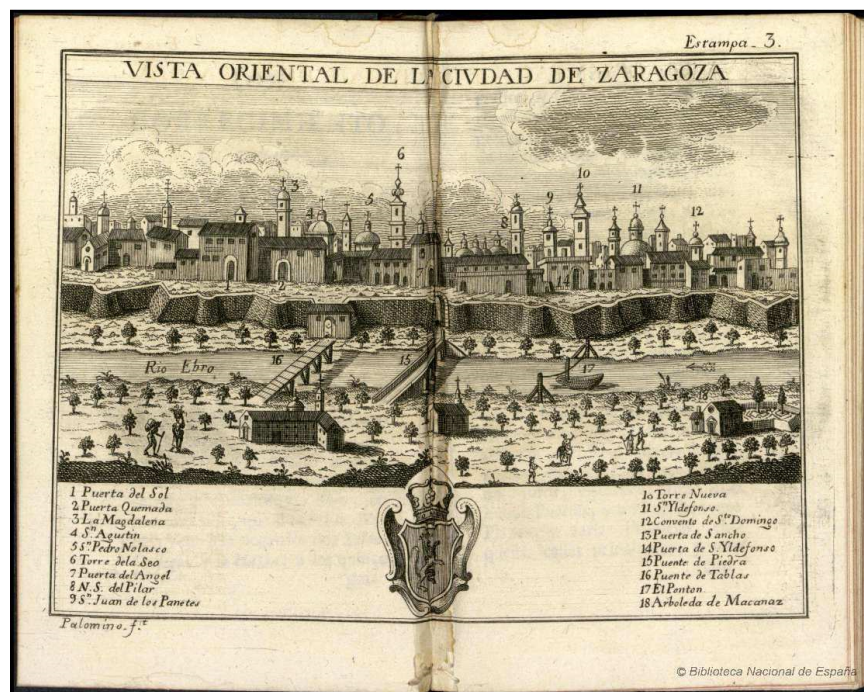 Estampa. 3.
VISTA ORIENTAL DE LA CIVDAD DE ZARAGOZA
6
10
3
5
9
11
4
8
12
2
14
13
16
15
17
Rio Ebro
1 Puerta del Sol
2 Puerta Quemada
3 La Magdalena
4 Sn. Agustin
5 Sn. Pedro Nolasco
6 Torre dela Seo
7 Puerta del Angel
8 N. S. del Pilar
9 Sn. Juan de los Panetes
10 Torre Nueva
11 Sn. Yldefonso.
12 Convento de Sto. Domingo
13 Puerta de Sancho
14 Puerta de S. Yldefonso
15 Puente de Piedra
16 Puente de Tablas
17 El Ponton
18 Arboleda de Macanaz
Palomino. f.t
© Biblioteca Nacional de España